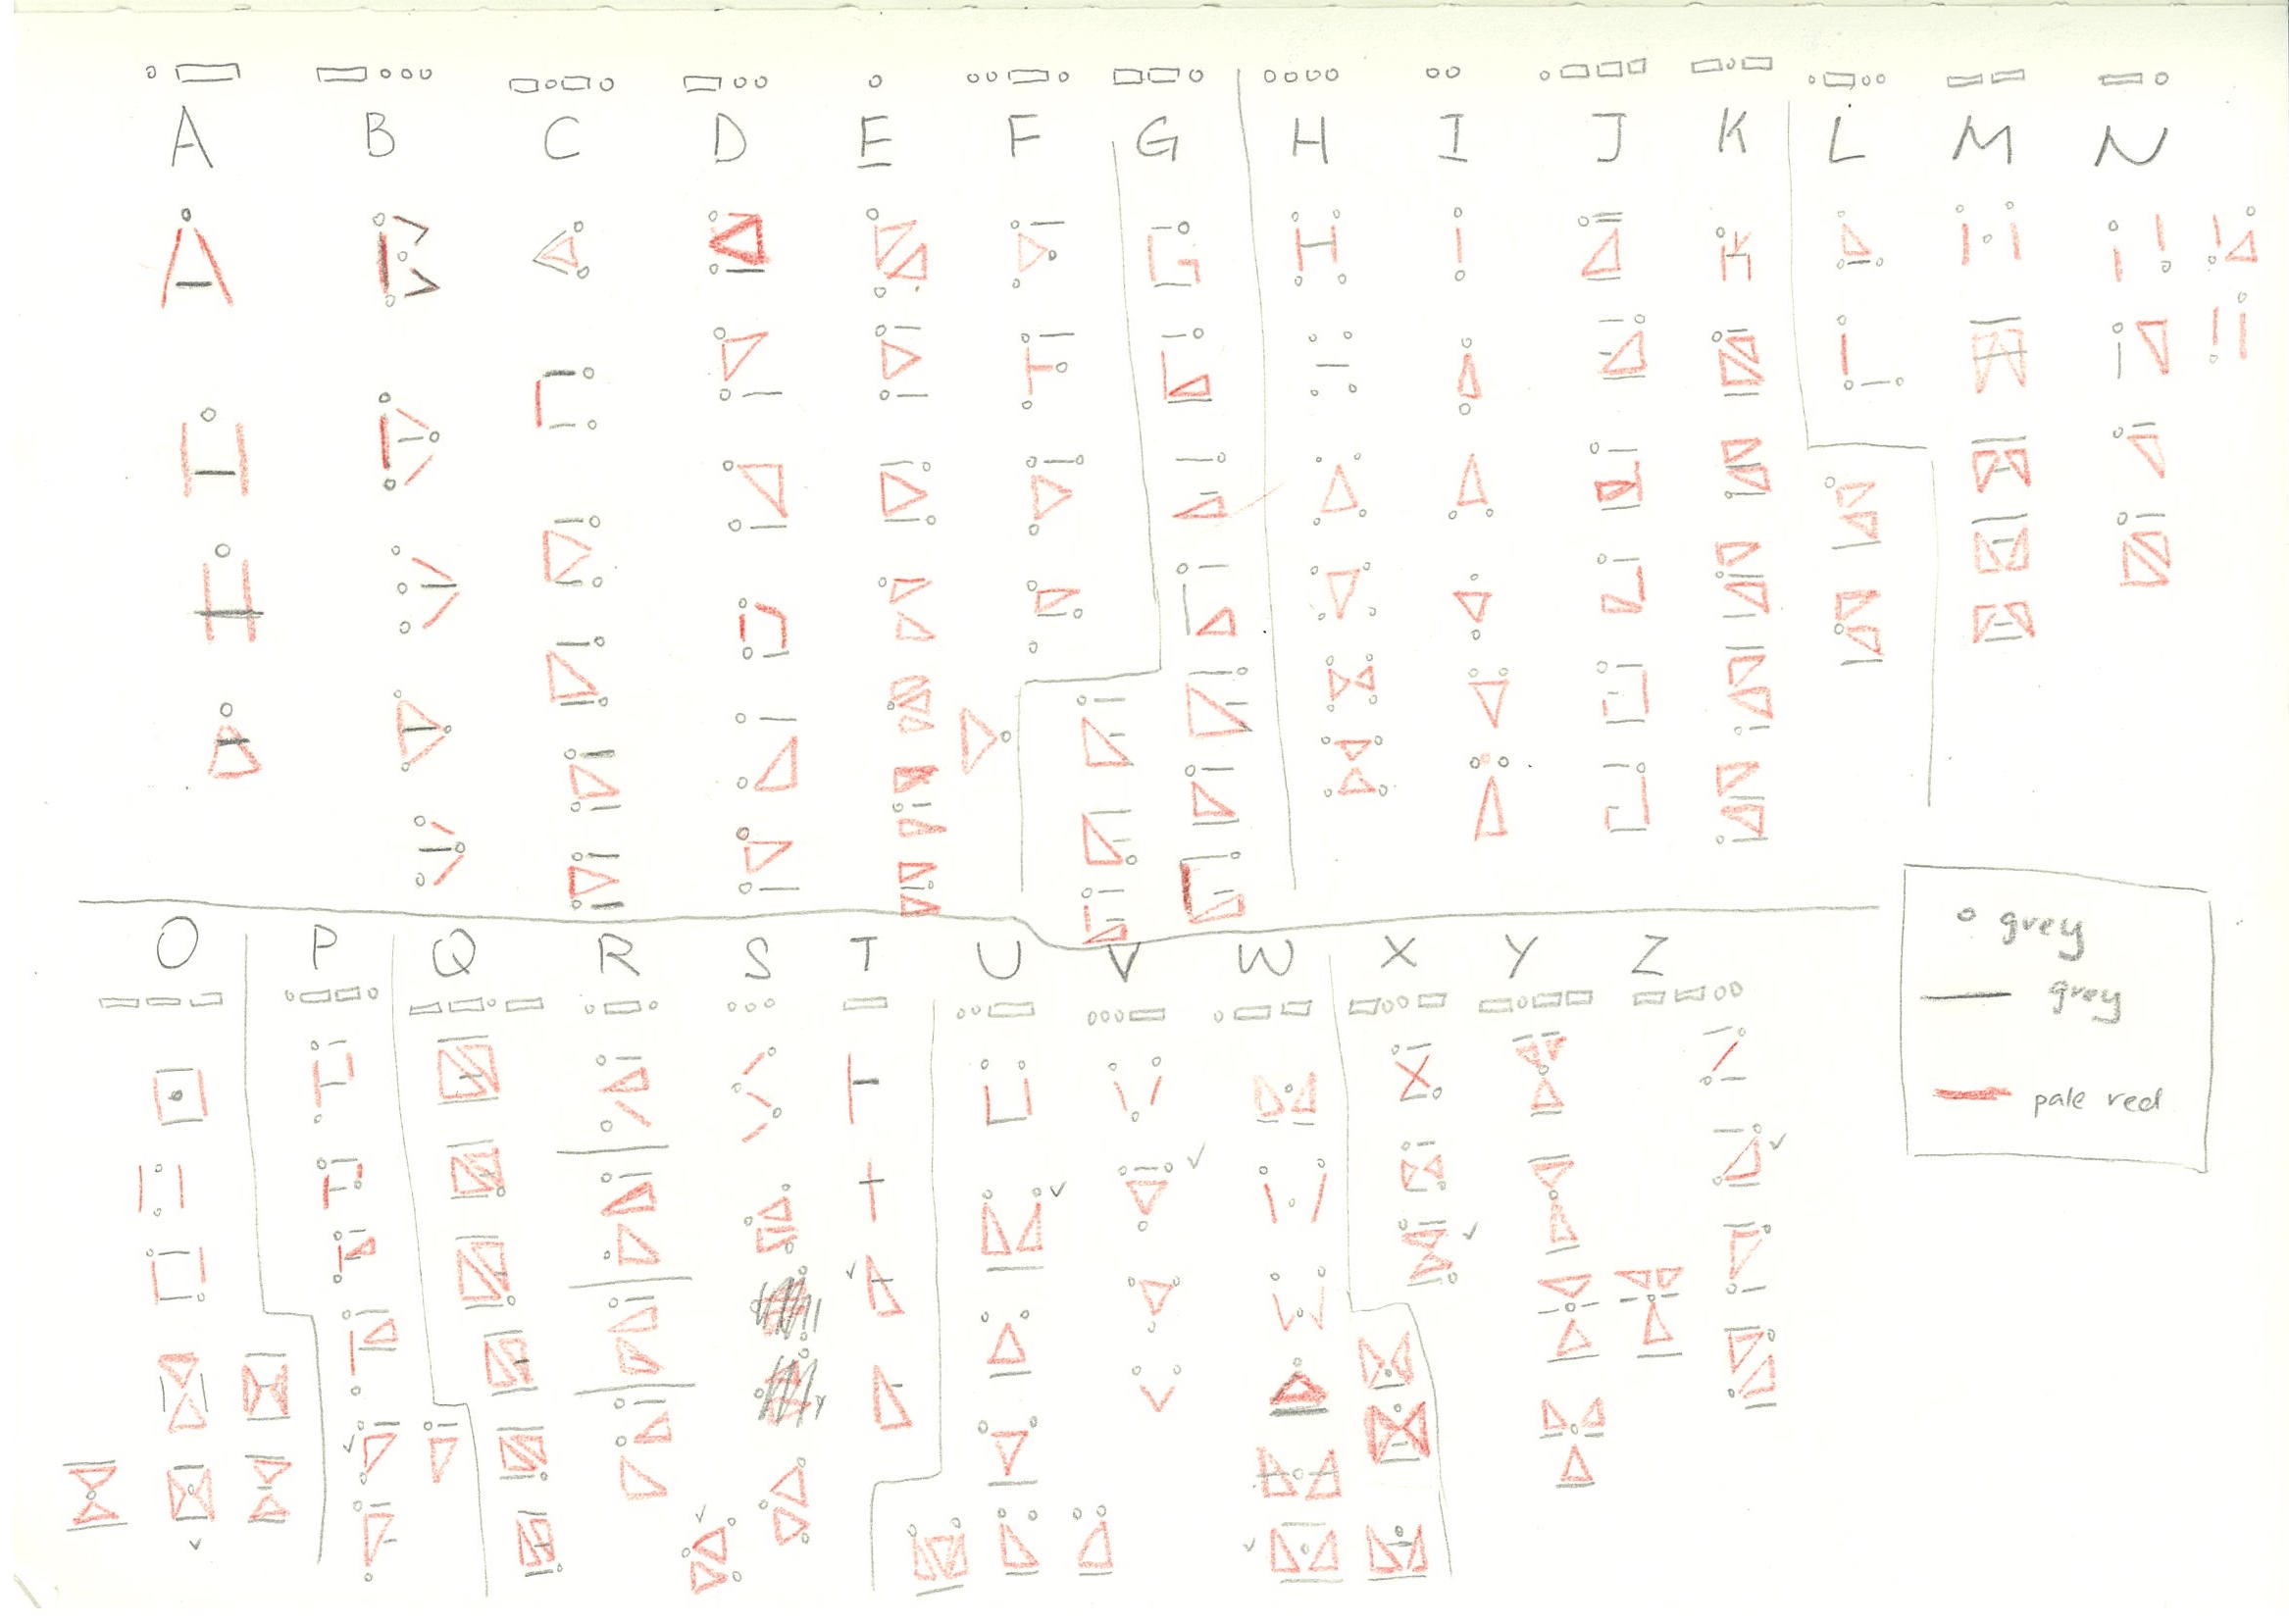 A B C D E F G H I J K L M N
O P Q R S T U V W X Y Z
grey
grey
pale red